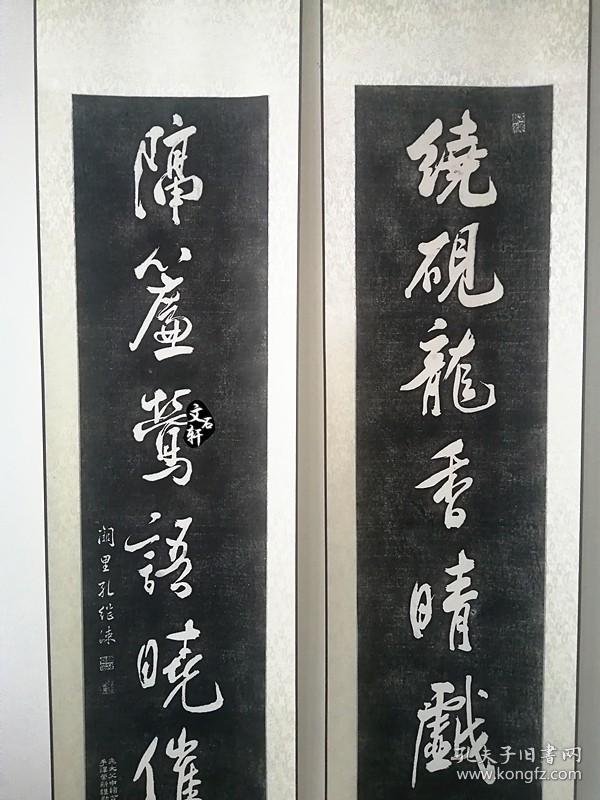 繞硯龍香晴戲
隔簾鶯語曉催
闕里孔繼涑
文石軒
孔夫子旧书网
www.kongfz.com